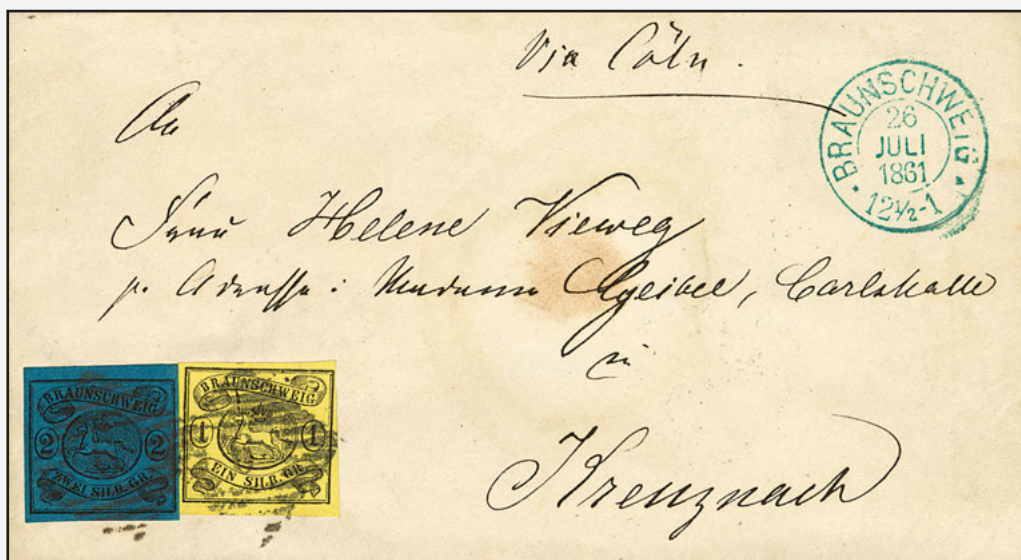 Via Cöln.
BRAUNSCHWEIG
26
JULI
1861
12½-1
An
Frau Helene Vieweg
p. Adresse: Madame Geibel, Carlshalle
in
Kreuznach
BRAUNSCHWEIG
2 2
ZWEI SILB. GR.
BRAUNSCHWEIG
1 1
EIN SILB. GR.